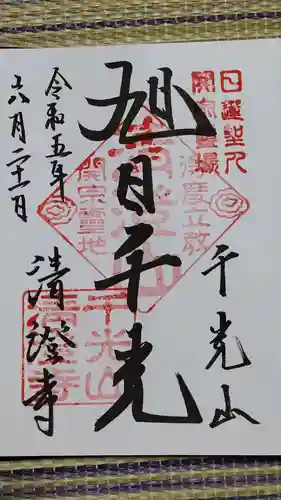 日蓮聖人
開宗霊場
千光山
旭日千光
清澄山
虚空蔵度立教
開宗霊地
千光山
清澄寺
清澄寺
令和五年
六月二十一日